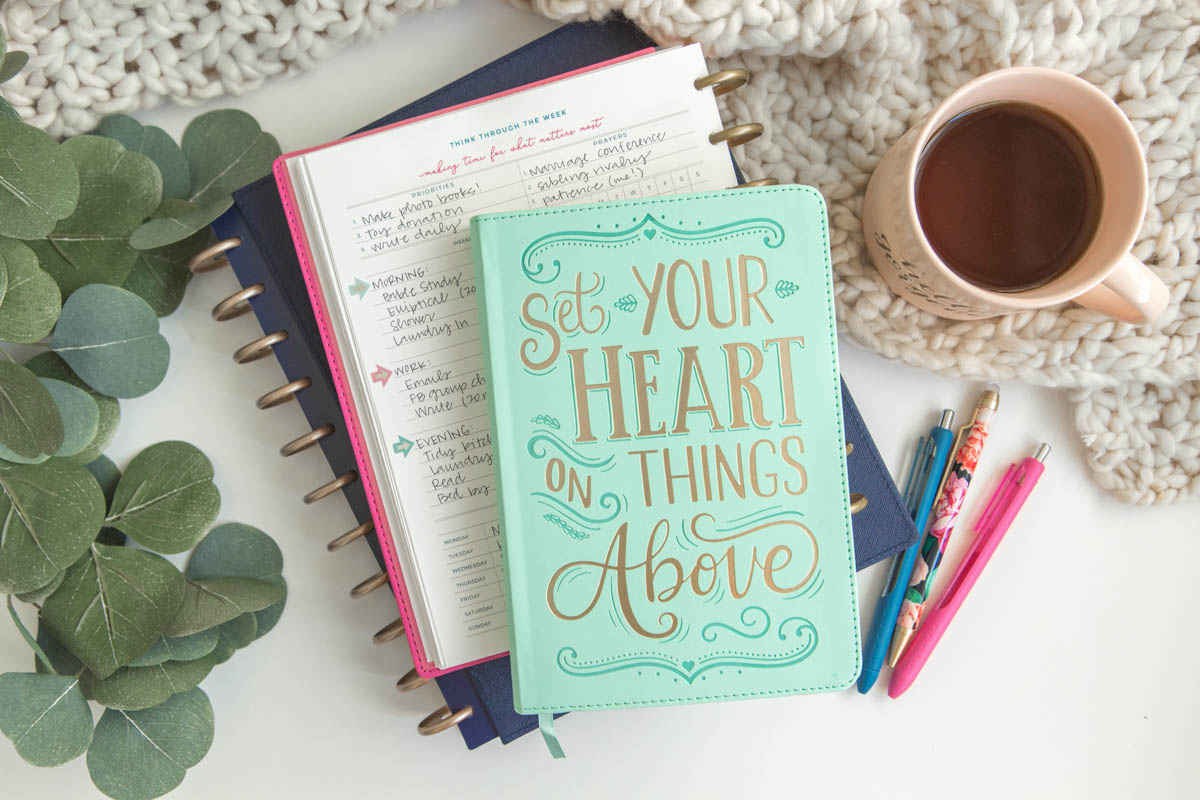 THINK THROUGH THE WEEK
making time for what matters most
PRIORITIES
1. Make photo books!
2. Toy donation
3. Write daily
PRAYERS
1. Marriage conference
2. sibling rivalry
3. patience (me!)
M T W T F S
MORNING:
Bible Study
Elliptical (20
Shower
Laundry in
WORK:
Emails
FB group
Write (20
EVENING:
Tidy Kitch
Laundry
Read
Bed by
MONDAY
TUESDAY
WEDNESDAY
THURSDAY
FRIDAY
SATURDAY
SUNDAY
Set YOUR
HEART
ON THINGS
Above